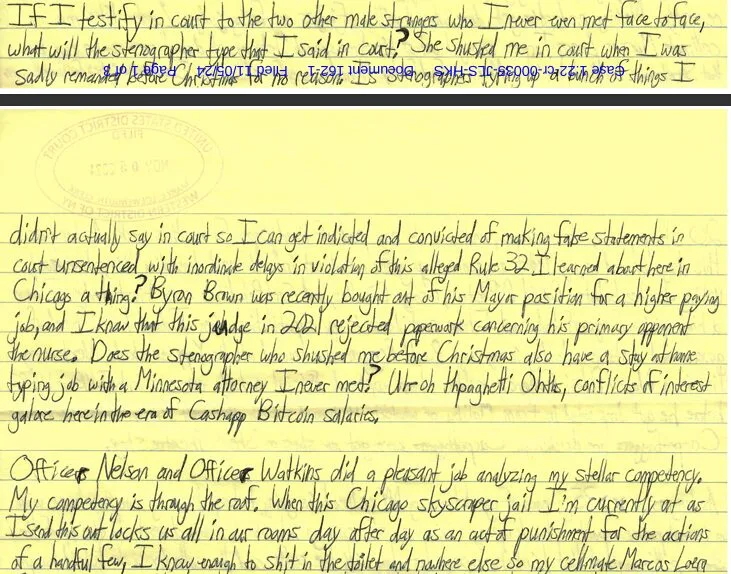 If I testify in court to the two other male strangers who I never even met face to face,
what will the stenographer type that I said in court? She shushed me in court when I was
sadly remanded before Christmas for no reason. Is stenographer typing up a bunch of things I
Case 1:22-cr-00035-JLS-HKS Document 162-1 Filed 11/05/24 Page 1 of 8
UNITED STATES DISTRICT COURT
FILED
WESTERN DISTRICT OF NY
didn't actually say in court so I can get indicted and convicted of making false statements in
court unsentenced with inordinate delays in violation of this alleged Rule 32 I learned about here in
Chicago a thing? Byron Brown was recently bought out of his Mayor position for a higher paying
job, and I know that this judge in 2021 rejected paperwork concerning his primary opponent
the nurse. Does the stenographer who shushed me before Christmas also have a stay at home
typing job with a Minnesota attorney I never met? Uh oh thpaghetti Ohths, conflicts of interest
galore here in the era of Cashapp Bitcoin salaries.
Officer Nelson and Officer Watkins did a pleasant job analyzing my stellar competency.
My competency is through the roof. When this Chicago skyscraper jail I'm currently at as
I send this out locks us all in our rooms day after day as an act of punishment for the actions
of a handful few, I know enough to shit in the toilet and nowhere else so my cellmate Marcos Loera